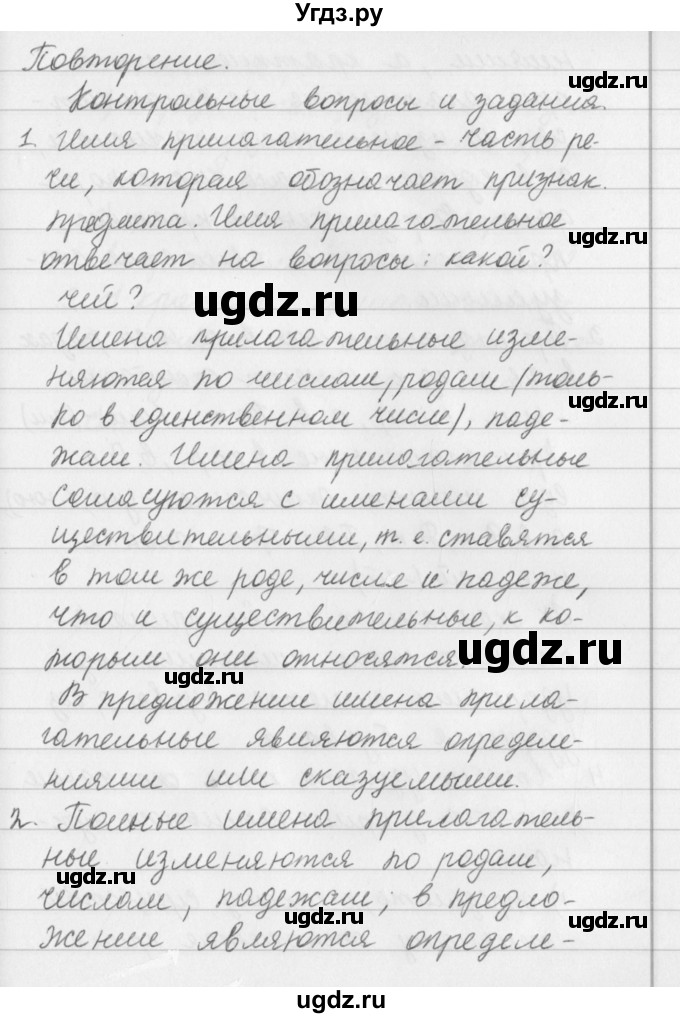 Угдз.ру
Повторение.
Контрольные вопросы и задания.
1. Имя прилагательное - часть ре-
чи, которая обозначает признак
предмета. Имя прилагательное
отвечает на вопросы: какой?
чей?
Имена прилагательные изме-
няются по числам, родам (толь-
ко в единственном числе), паде-
жам. Имена прилагательные
согласуются с именами су-
ществительными, т. е. ставятся
в том же роде, числе и падеже,
что и существительные, к ко-
торым они относятся.
В предложении имена прила-
гательные являются определе-
ниями или сказуемыми.
2. Полные имена прилагатель-
ные изменяются по родам,
числам, падежам; в предло-
жении являются определе-
ugdz.ru
ugdz.ru
ugdz.ru
ugdz.ru
ugdz.ru
ugdz.ru
ugdz.ru
ugdz.ru
ugdz.ru